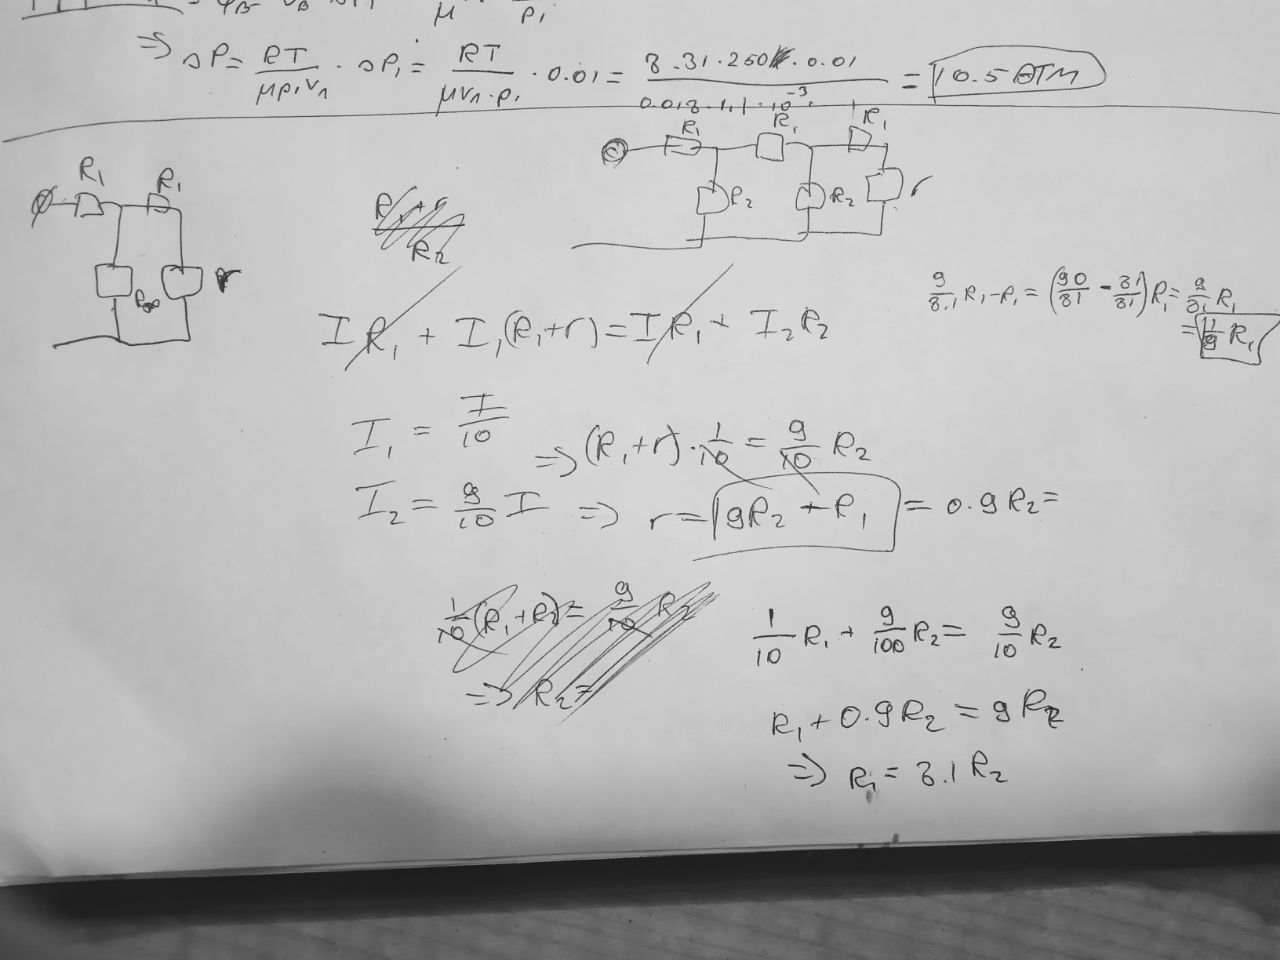 ⇒ ΔP = RT/μρ₁V₁ · ΔP₁ = RT/μV₁·ρ₁ · 0.01 = 8.31·250·0.01/0.018·1.1·10⁻³ = 10.5 ATM
R₁ R₁ R₁
R₂ R₂ r
R₁ R₁
r
I R₁ + I₁(R₁+r) = I R₁ + I₂R₂
9/8.1 R₁ - R₁ = (90/81 - 81/81) R₁ = 9/81 R₁
R₁
I₁ = I/10 ⇒ (R₁+r)·1/10 = 9/10 R₂
I₂ = 9/10 I ⇒ r = 9R₂ + R₁ = 0.9R₂ =
1/10 R₁ + 9/100 R₂ = 9/10 R₂
R₁ + 0.9R₂ = 9R₂
⇒ R₁ = 8.1 R₂